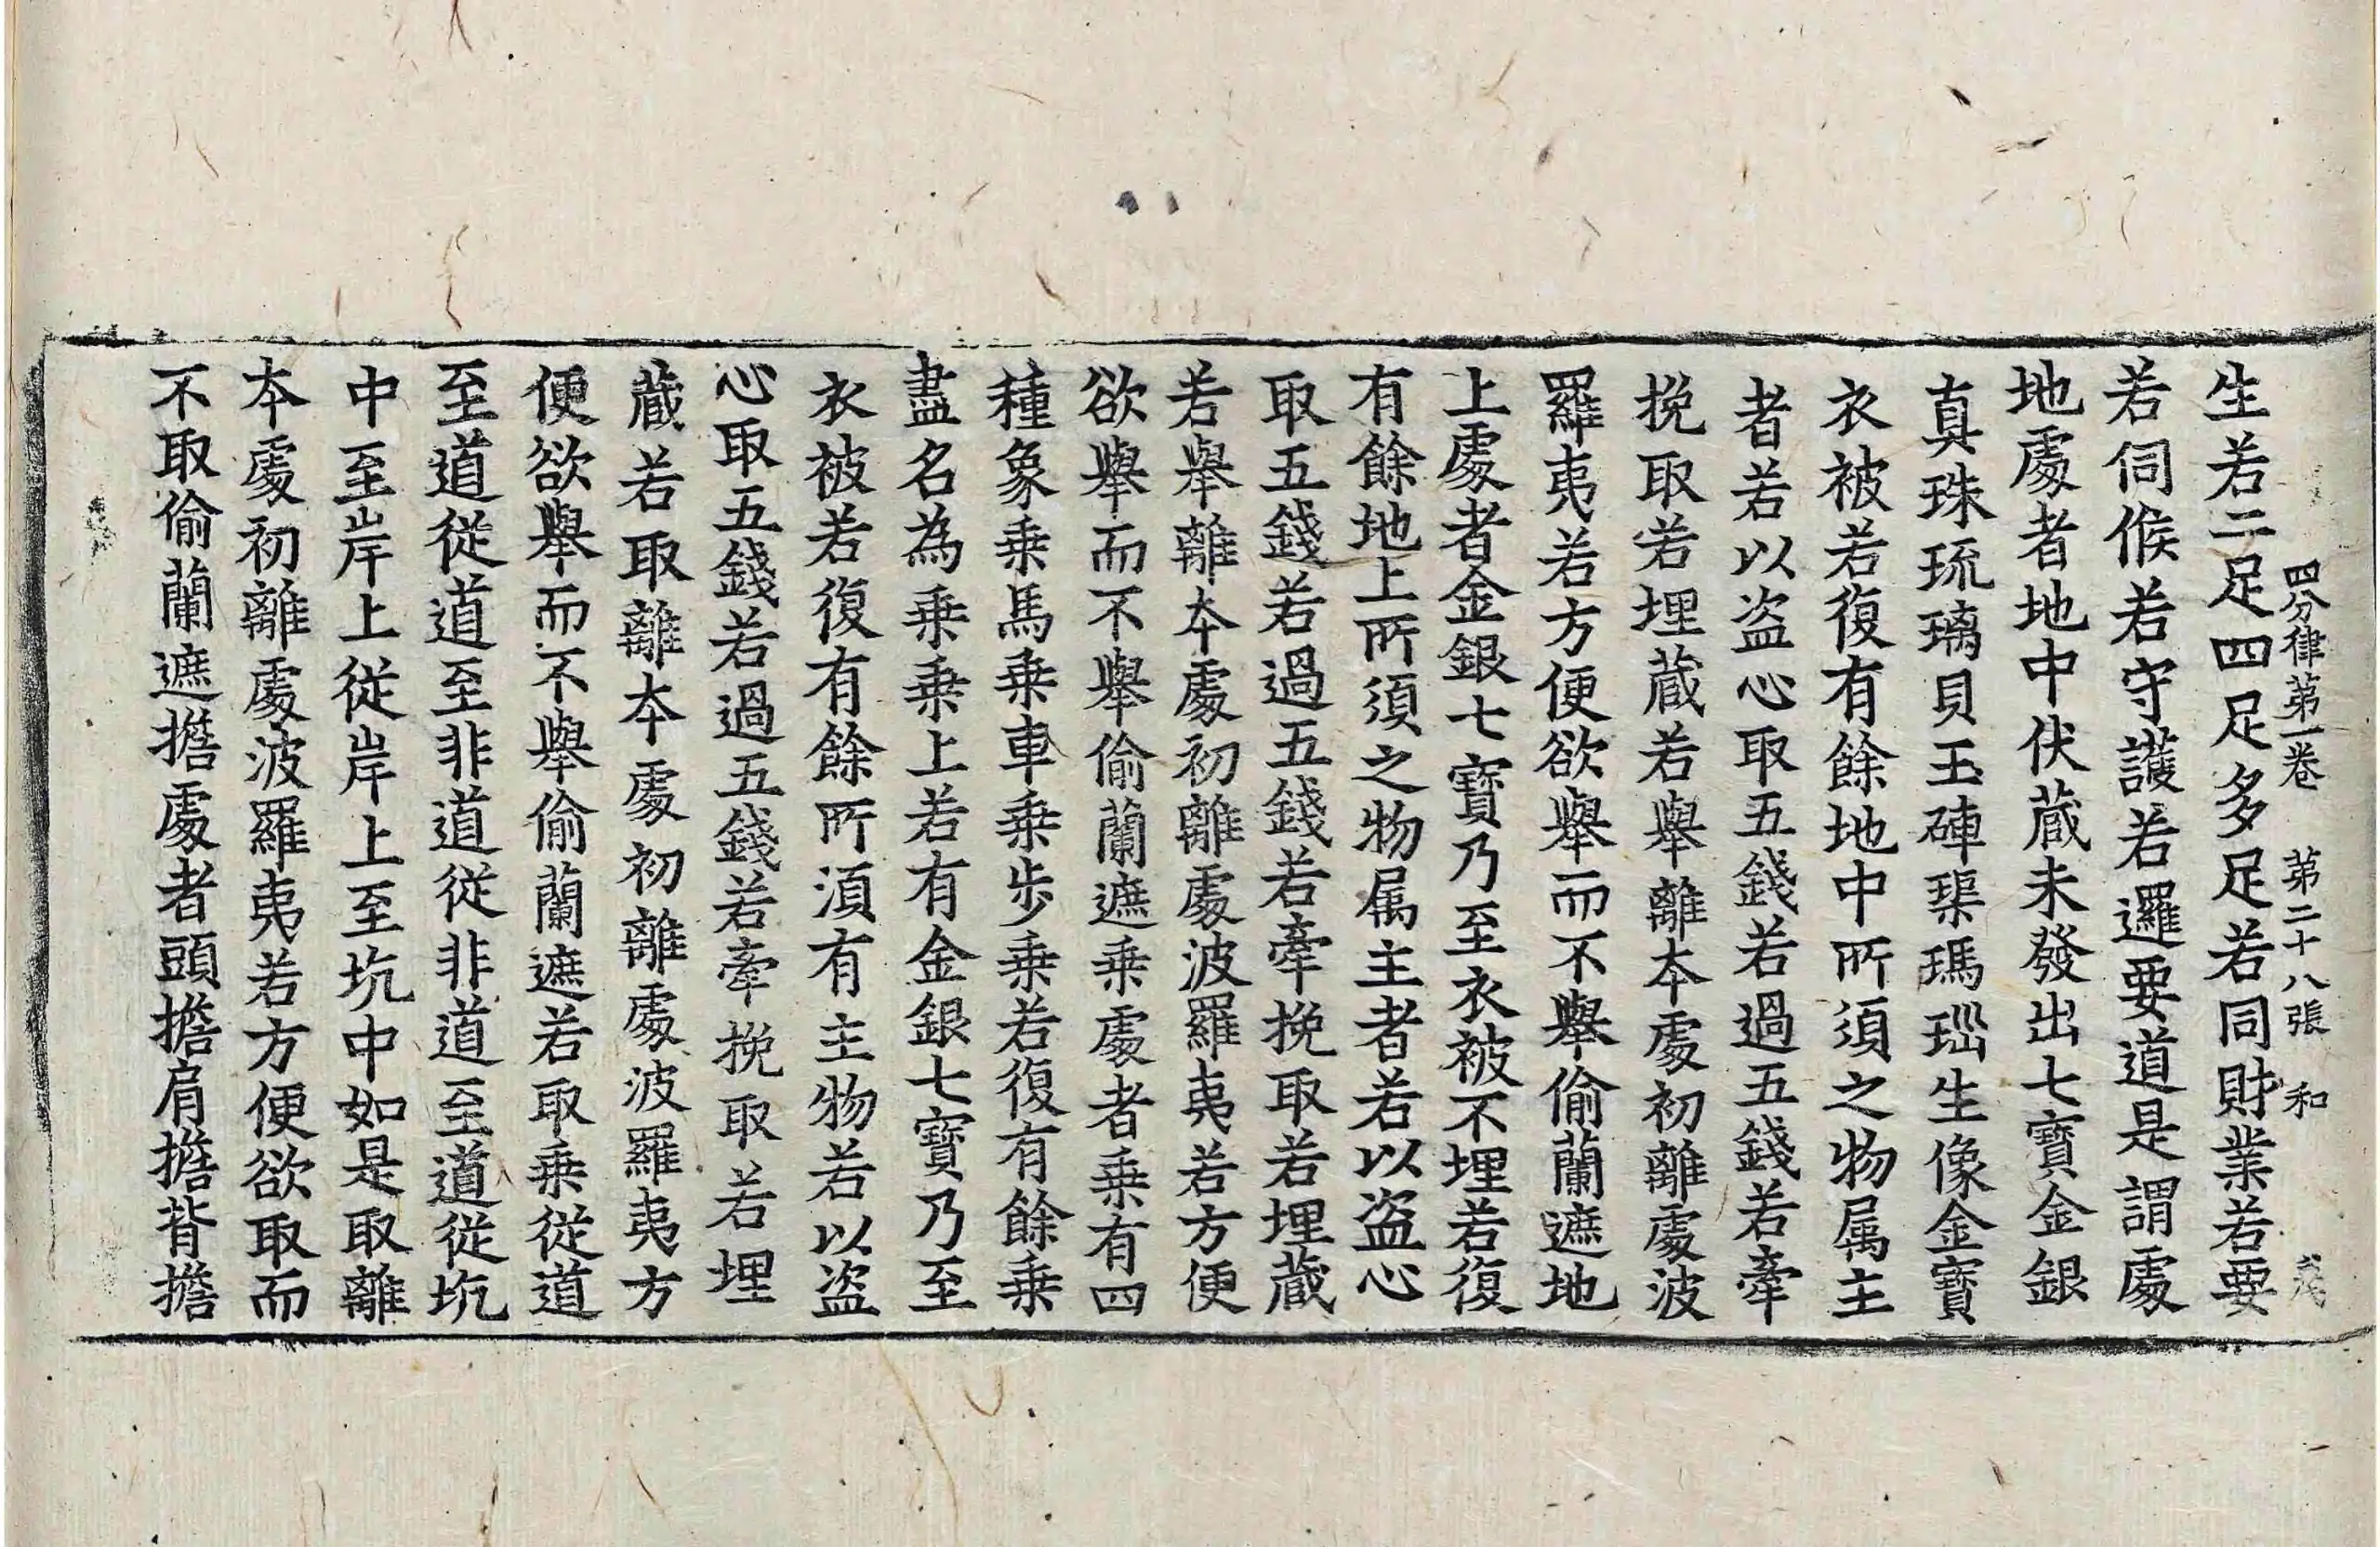 四分律第一卷 第二十八張 和
生若二足四足多足若同財業若要
若伺候若守護若邏要道是謂處
地處者地中伏蔵未發出七寶金銀
真珠琉璃貝玉硨璖瑪瑙生像金寶
衣被若復有餘地中所須之物属主
者若以盗心取五錢若過五錢若牽
挽取若埋蔵若舉離本處初離處波
羅夷若方便欲舉而不舉偷蘭遮地
上處者金銀七寶乃至衣被不埋若復
有餘地上所須之物属主者若以盗心
取五錢若過五錢若牽挽取若埋蔵
若舉離本處初離處波羅夷若方便
欲舉而不舉偷蘭遮乗處者乗有四
種象乗馬乗車乗步乗若復有餘乗
盡名為乗乗上若有金銀七寶乃至
衣被若復有餘所湏有主物若以盗
心取五錢若過五錢若牽挽取若埋
蔵若取離本處初離處波羅夷方
便欲舉而不舉偷蘭遮若取乗従道
至道従道至非道従非道至道従坑
中至岸上従岸上至坑中如是取離
本處初離處波羅夷若方便欲取而
不取偷蘭遮擔處者頭擔肩擔背擔